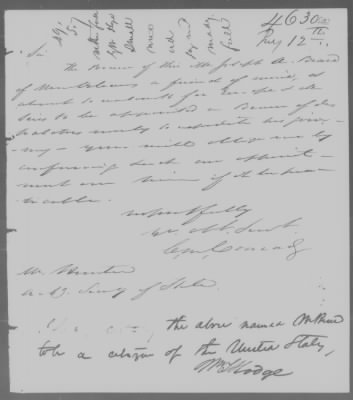 4630
July 12
Sir
The Bearer of this Mr Joseph A. Beard
of New Orleans a friend of mine, is
about to embark for Europe & de-
sires to be appointed a Bearer of des-
patches merely to expedite his jour-
ney - you will oblige me by
conferring such an appoint-
ment on him if it be prac-
ticable.
respectfully
yr obt Servt
C. M. Conrad
Mr Hunter
Secy of State
the above named Mr Beard
to be a citizen of the United States,
Wm L Hodge